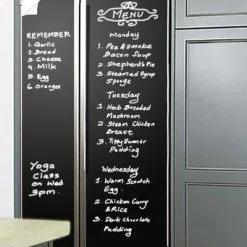 REMEMBER
1. Garlic
2. Bread
3. Cheese
4. Milk
5. Egg
6. Oranges
Yoga
Class
on Wed
3pm.
MENU
Monday
1. Pea & Smoke
Bacon Soup
2. Shepherd's Pie
3. Steamed Syrup
Sponge
Tuesday
1. Herb Breaded
Mushroom
2. Steam Chicken
Breast
3. Pudding
Wednesday
1. Warm Scotch
Egg.
2. Chicken Curry
& Rice
3. Dark Chocolate
Pudding